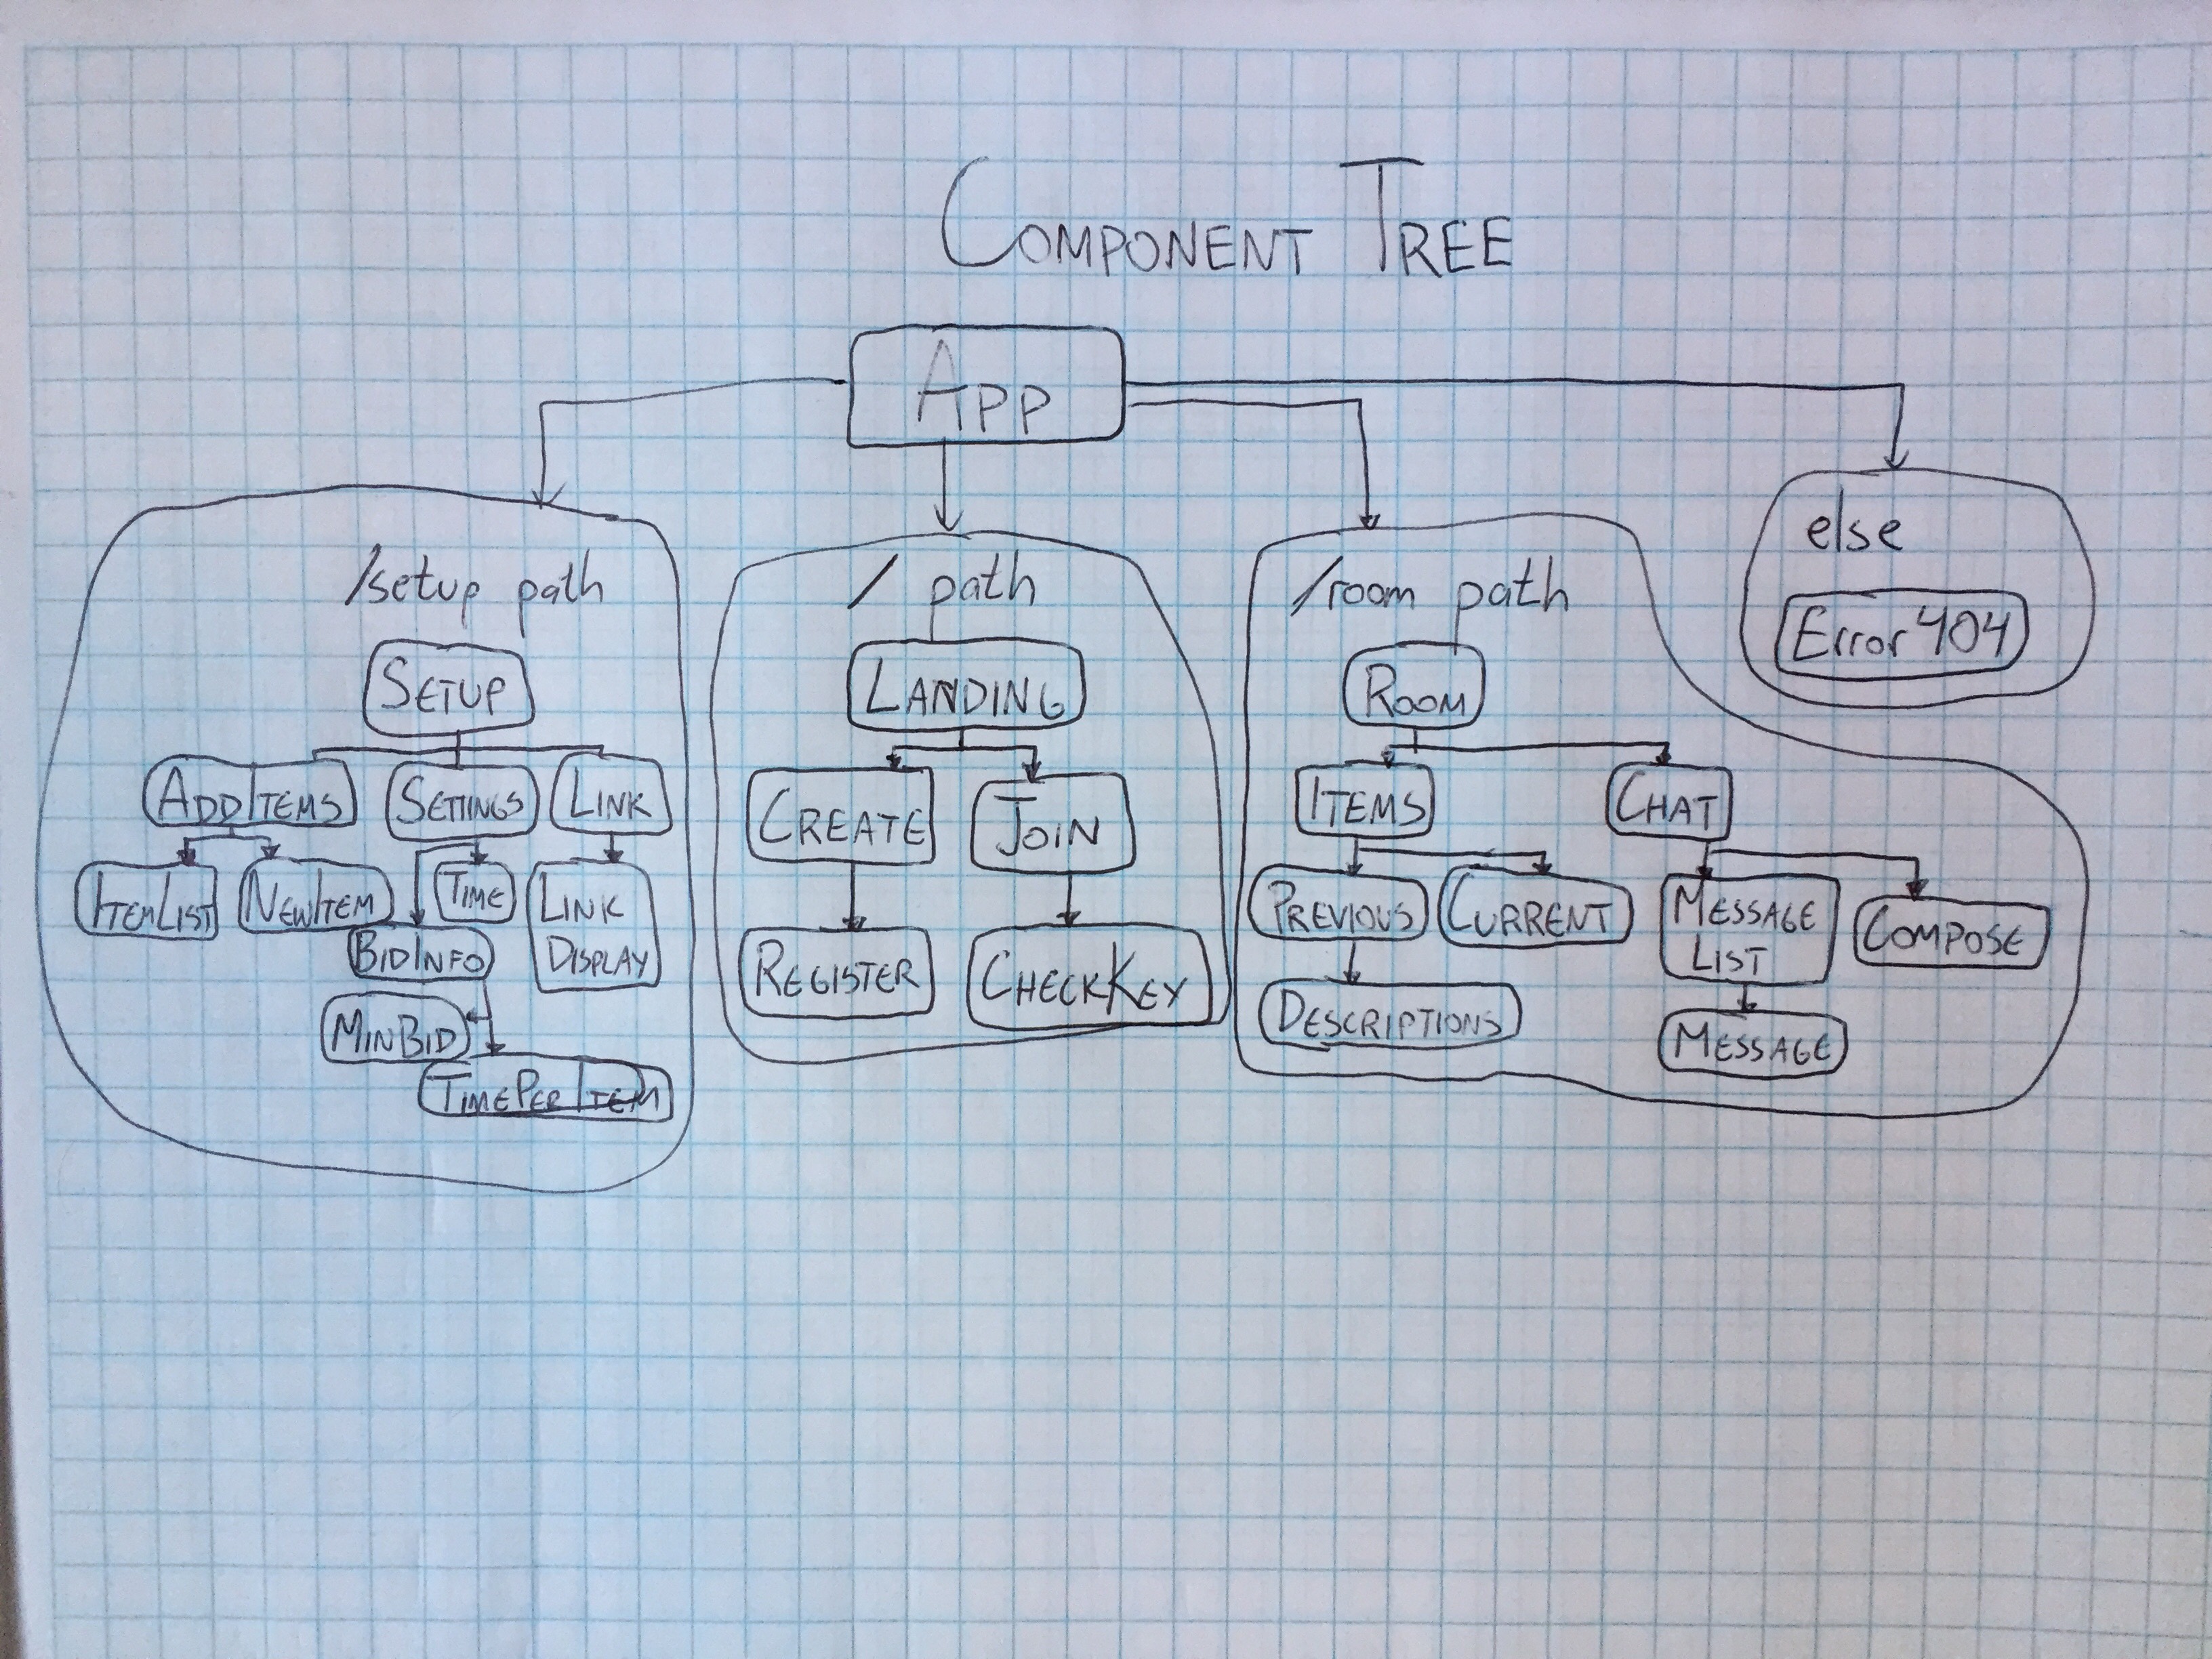 COMPONENT TREE
APP
/setup path
SETUP
ADDITEMS
SETTINGS
LINK
ITEMLIST
NEWITEM
TIME
LINK
DISPLAY
BIDINFO
MINBID
TIMEPERITEM
/ path
LANDING
CREATE
JOIN
REGISTER
CHECKKEY
/room path
ROOM
ITEMS
CHAT
PREVIOUS
CURRENT
MESSAGE
LIST
COMPOSE
DESCRIPTIONS
MESSAGE
else
Error404